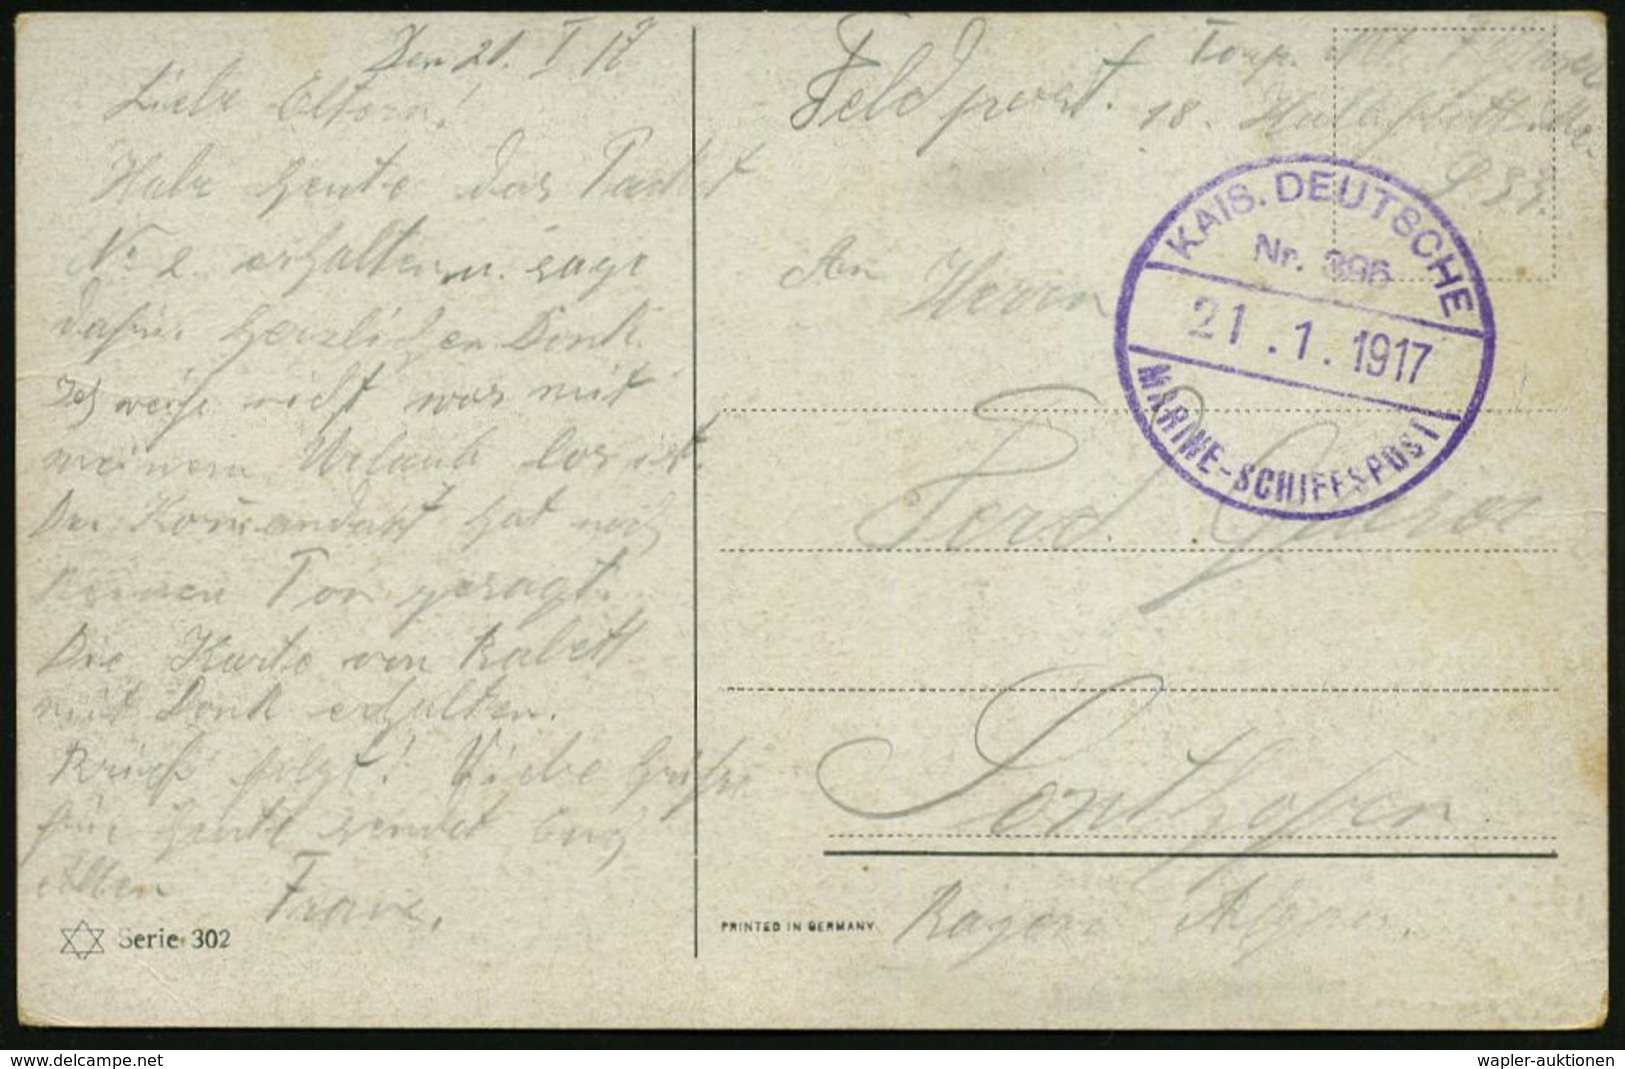 Den 21. I 17
Liebe Eltern!
Habe heute das Packet
No 2 erhalten u. sage
dafür herzlichen Dank.
Ich weiß nicht was mit
meinem Urlaub los ist.
Der Komandant hat mich
keinen Ton gesagt.
Die Karte von Babett
mit Dank erhalten.
Brief folgt! Viele Grüße
für heute sendet Euch
Allen Franz.
Serie 302
Feldpost.
Torp.
18. Halbflott.
S 33.
KAIS. DEUTSCHE
Nr. 396
21.1.1917
MARINE-SCHIFFSPOST
An Herrn
Ferd.
Sonthofen
Bayern
PRINTED IN GERMANY
delcampe.net
wapler-auktionen